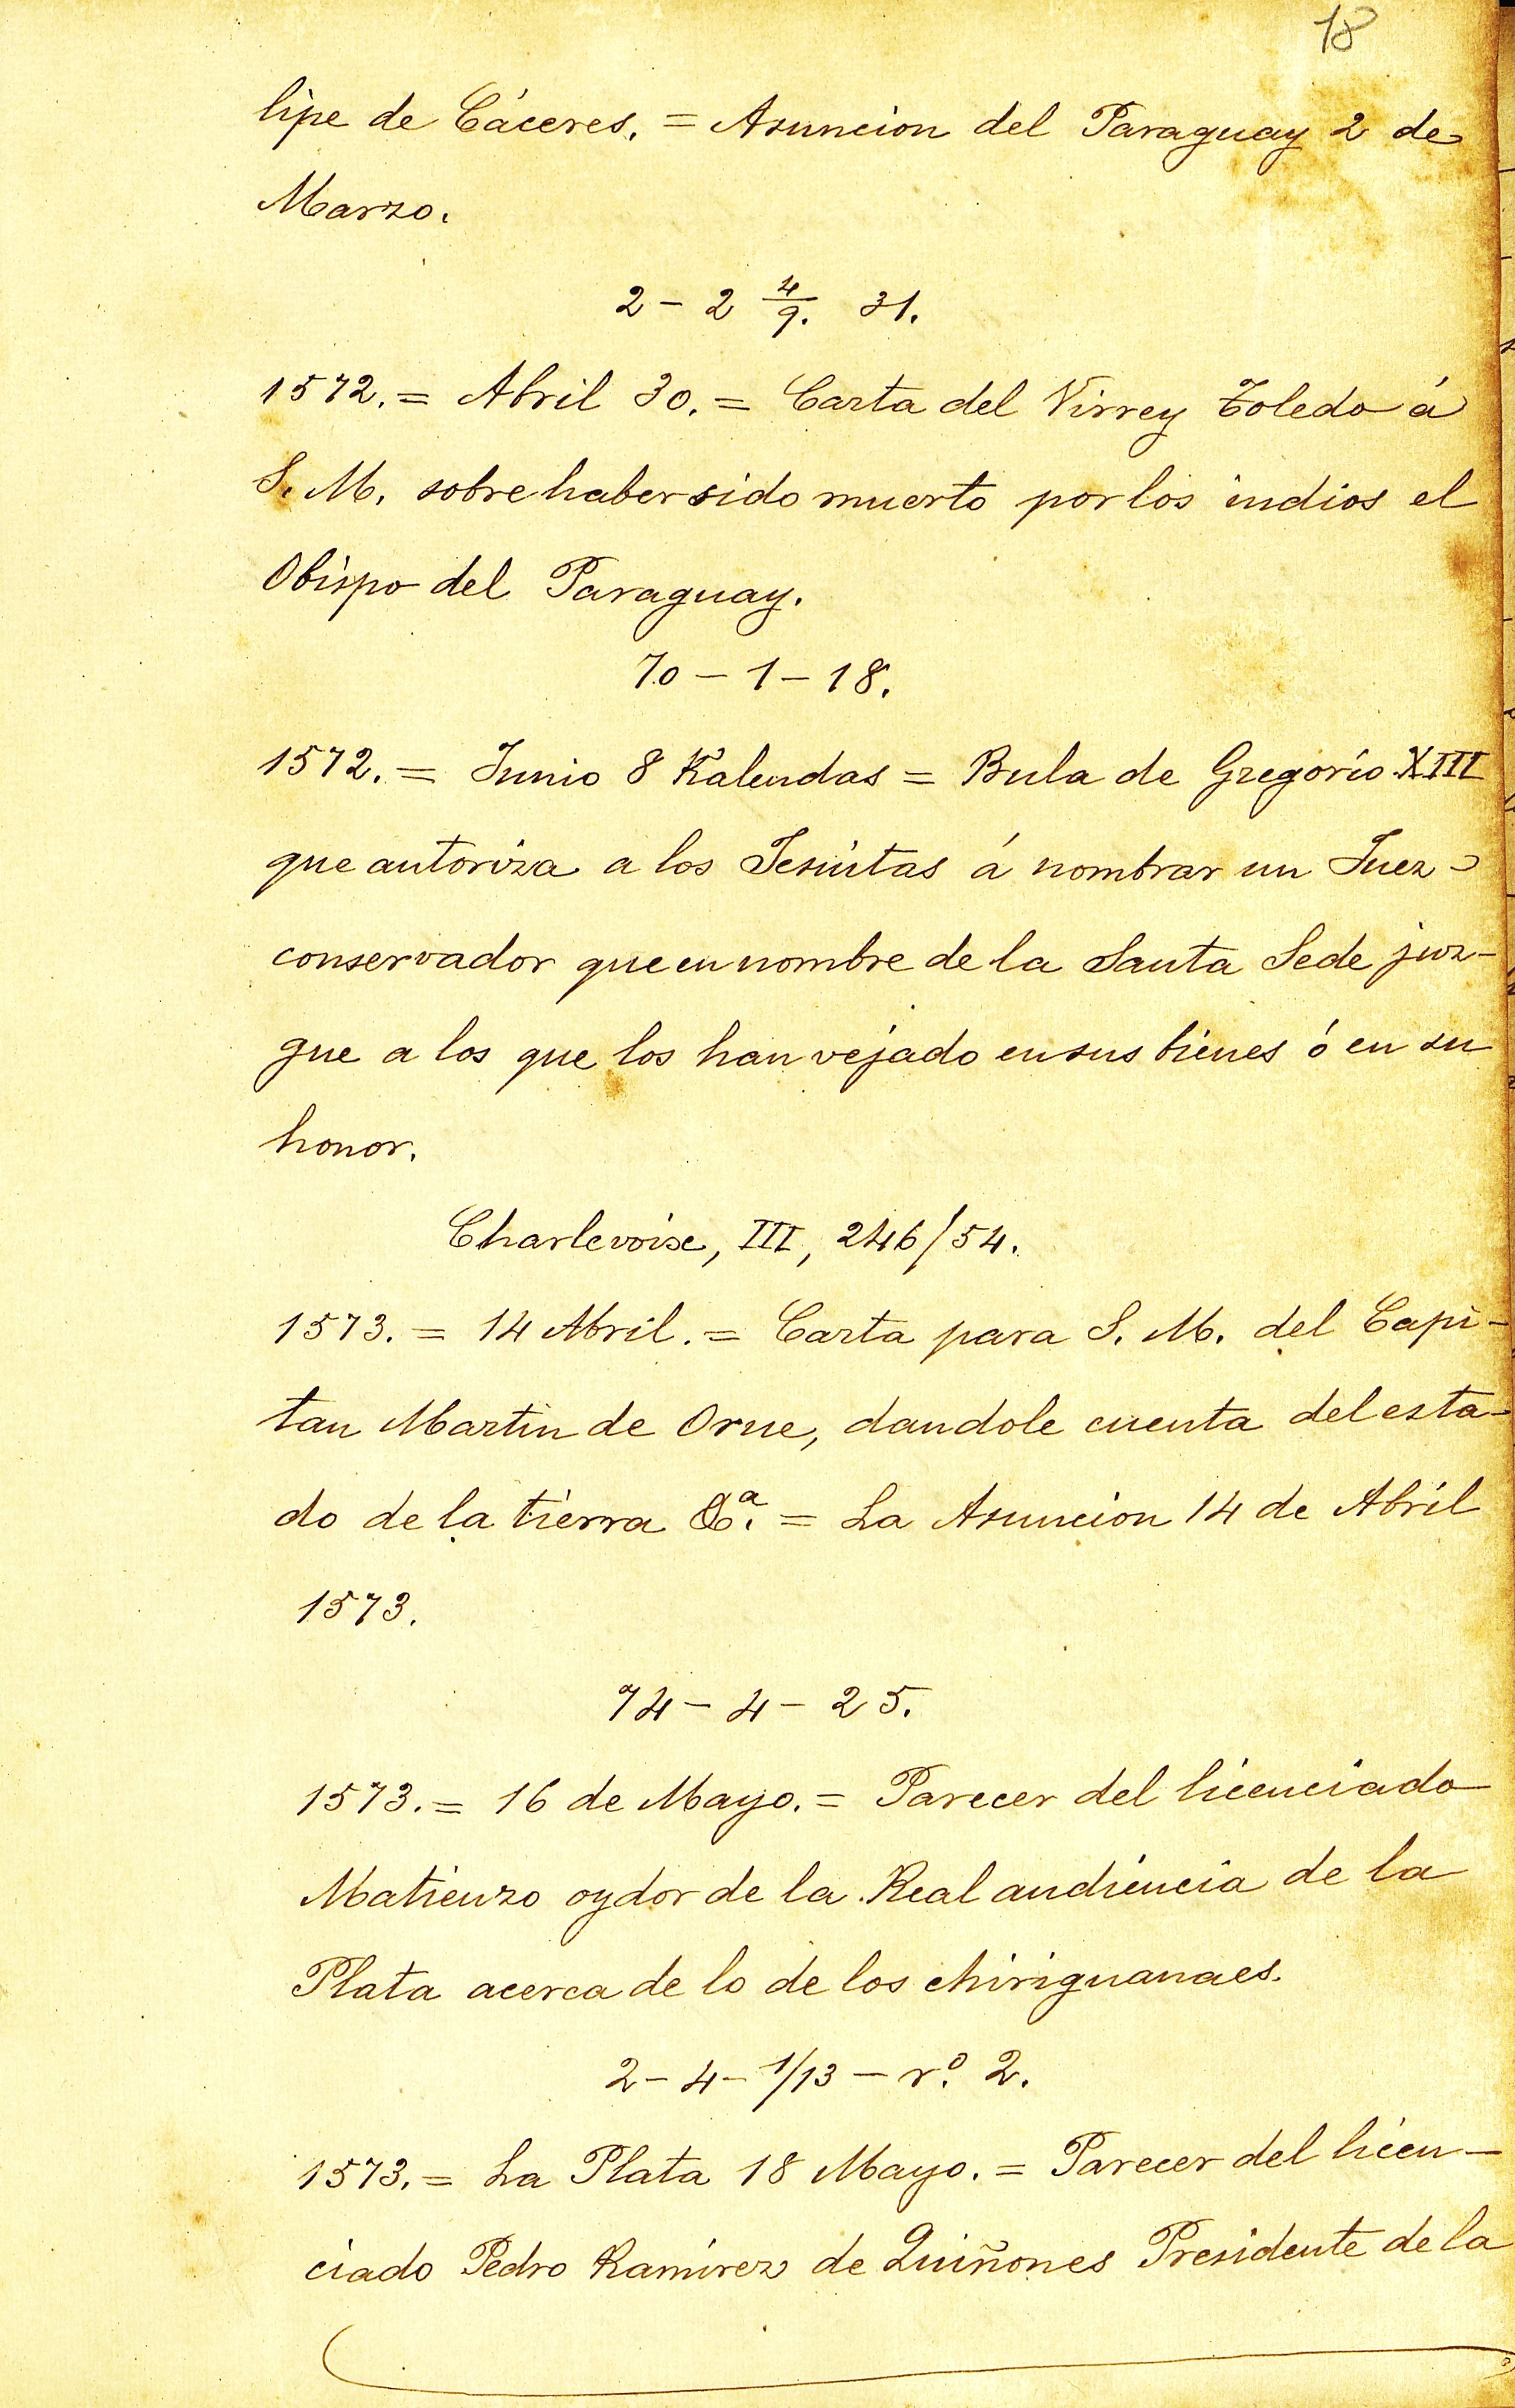 18
lipe de Cáceres. = Asuncion del Paraguay 2 de
Marzo.
2 - 2 4/9. 31.
1572. = Abril 30. = Carta del Virrey Toledo á
S. M. sobre haber sido muerto por los indios el
Obispo del Paraguay.
70 - 1 - 18.
1572. = Junio 8 Kalendas = Bula de Gregorio XIII
que autoriza a los Jesuitas á nombrar un Juez =
conservador que en nombre de la Santa Sede juz-
gue a los que los han vejado en sus bienes ó en su
honor.
Charlevoix, III, 246/54.
1573. = 14 Abril. = Carta para S. M. del Capi-
tan Martin de Orue, dandole cuenta del esta-
do de la tierra &ª. = La Asuncion 14 de Abril
1573.
74 - 4 - 25.
1573. = 16 de Mayo. = Parecer del licenciado
Matienzo oydor de la Real audiencia de la
Plata acerca de lo de los chiriguanaes.
2 - 4 - 1/13 - rº. 2.
1573. = La Plata 18 Mayo. = Parecer del licen-
ciado Pedro Ramirez de Quiñones Presidente de la